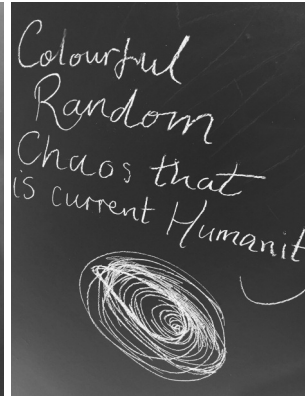 Colourful
Random
Chaos that
is current Humanit